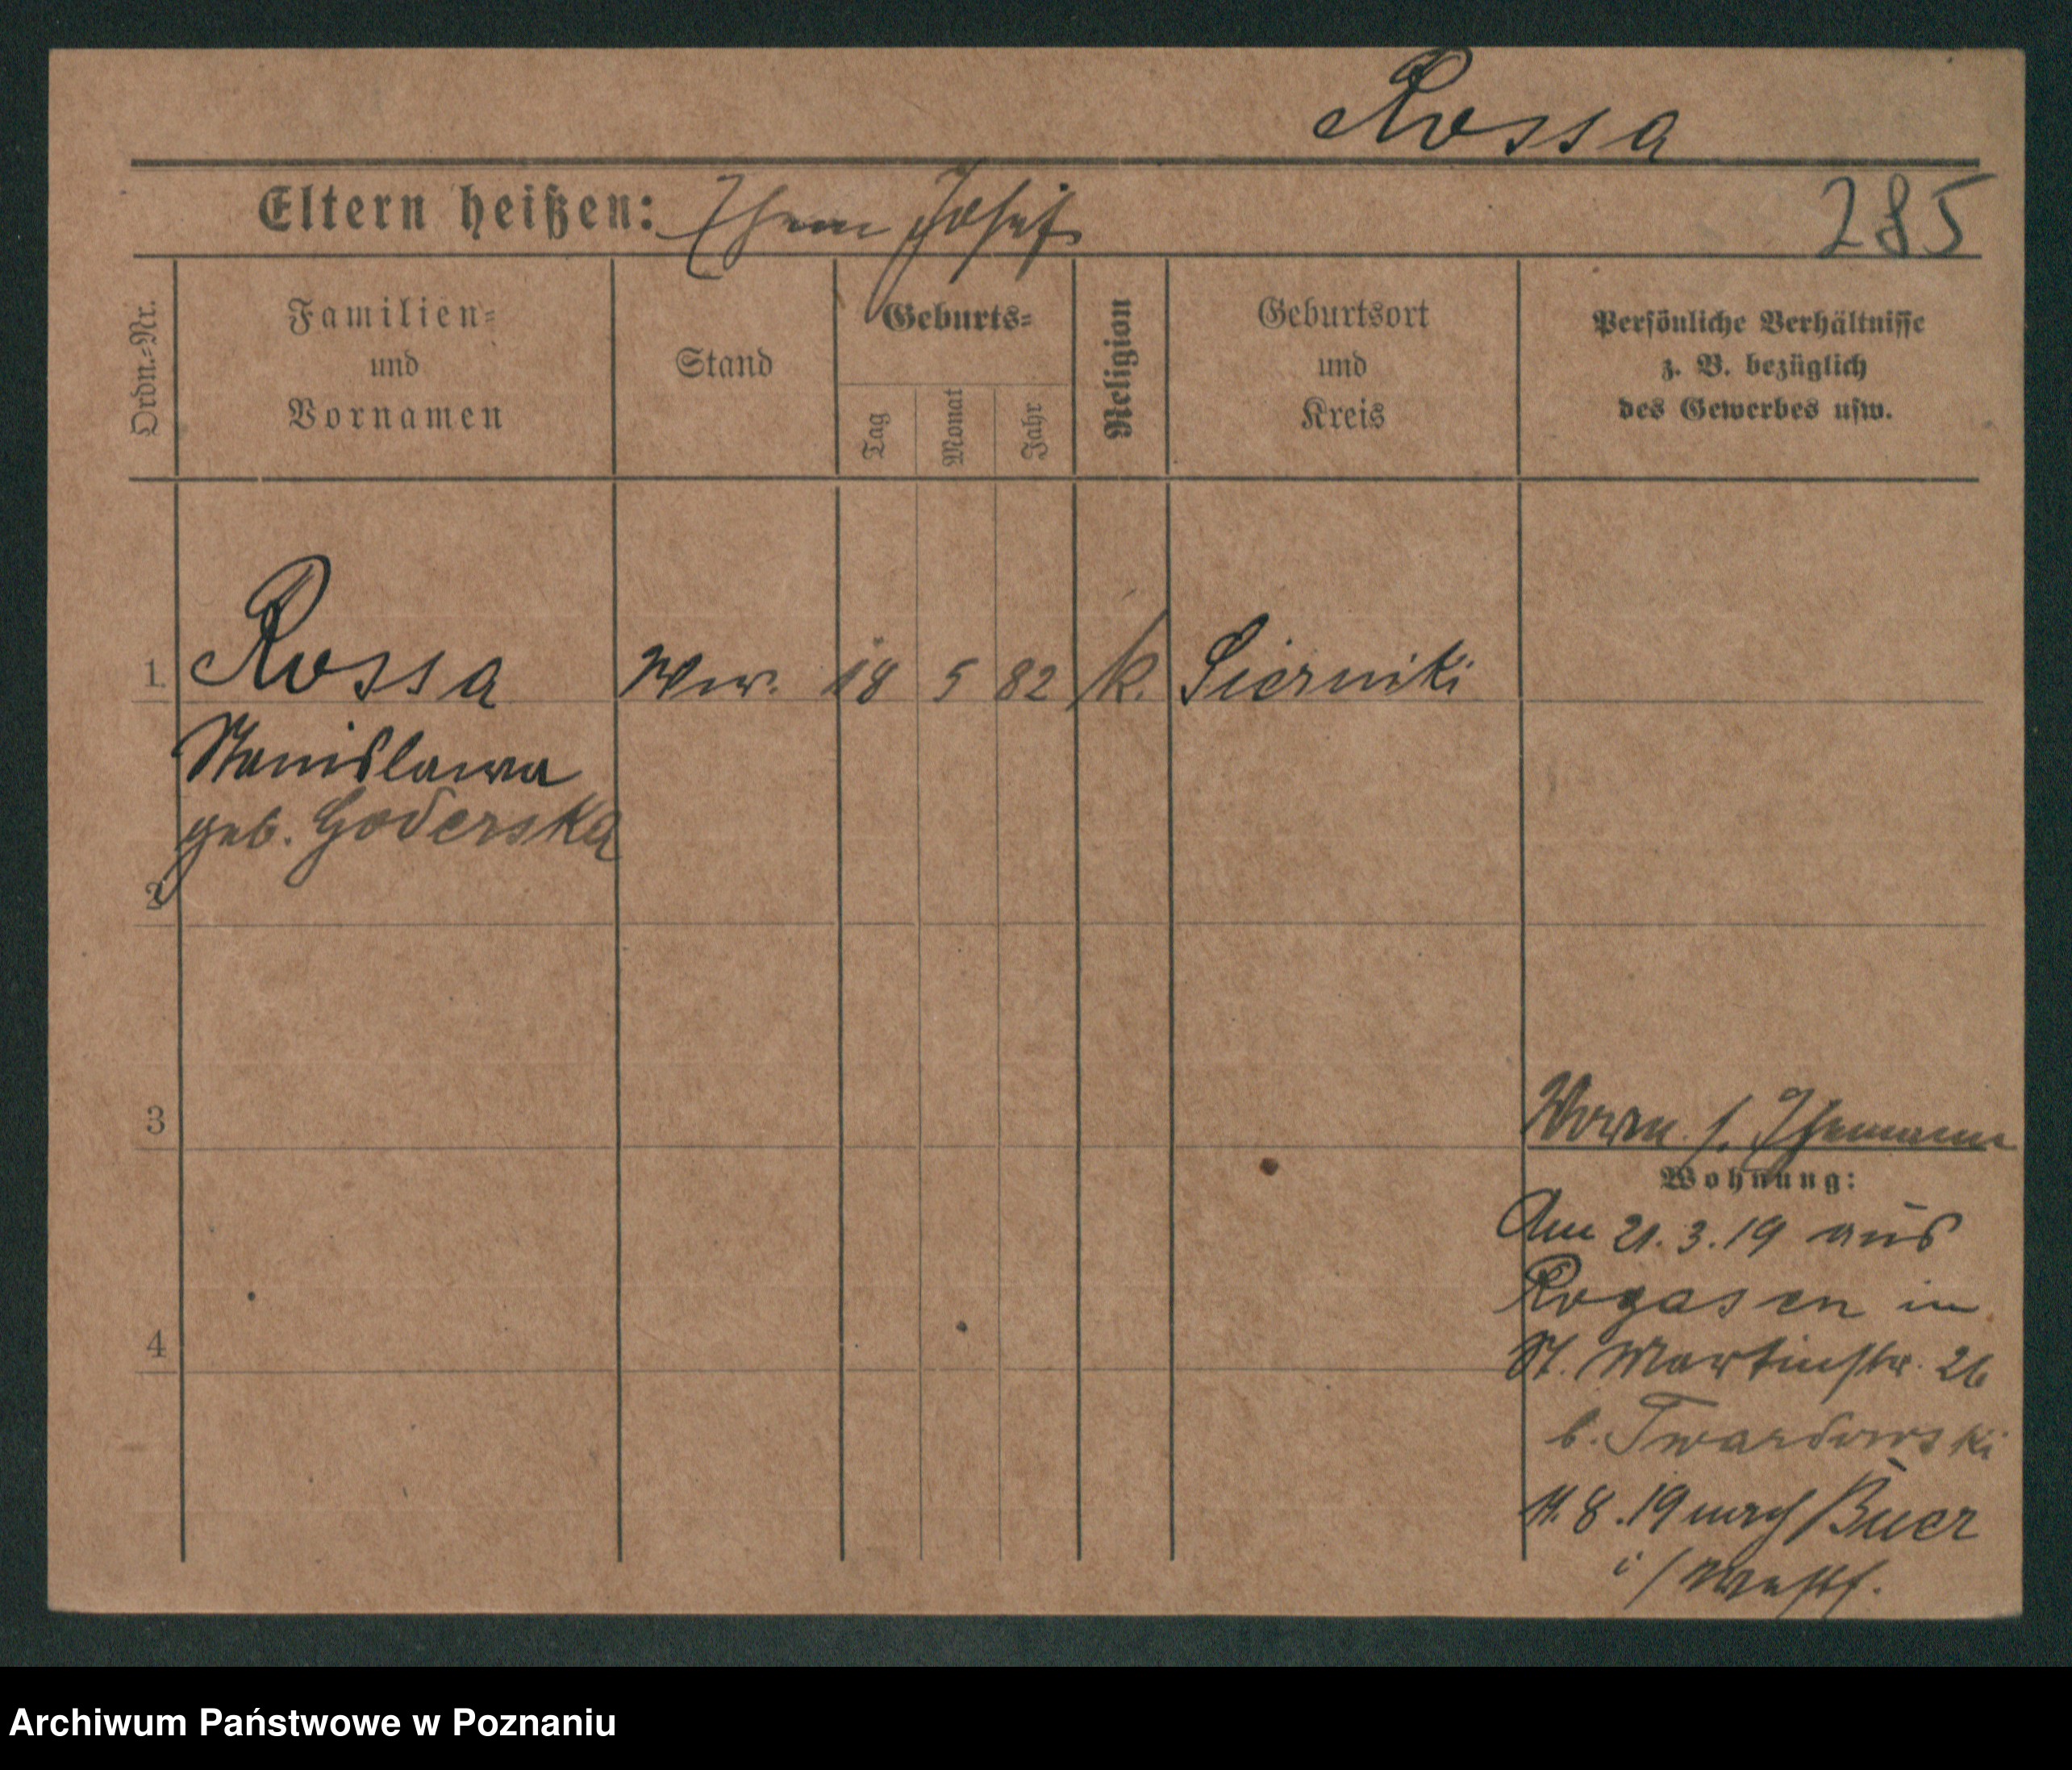 Rossa
Eltern heißen: Ehem Josef
285
Ordn.-Nr.
Familien-
und
Vornamen
Stand
Geburts-
Tag
Monat
Jahr
Religion
Geburtsort
und
Kreis
Persönliche Verhältnisse
z. B. bezüglich
des Gewerbes usw.
1 Rossa Wwe. 18 5 82 k. Sierniki
Stanislawa
geb. Goderska
2
3
Worm. f. Ehemann
Wohnung:
Am 21.3.19 aus
Rogasen in
St. Martinstr. 26
4
b. Twardowski
11.8.19 nach Buer
i/Westf.
Archiwum Państwowe w Poznaniu